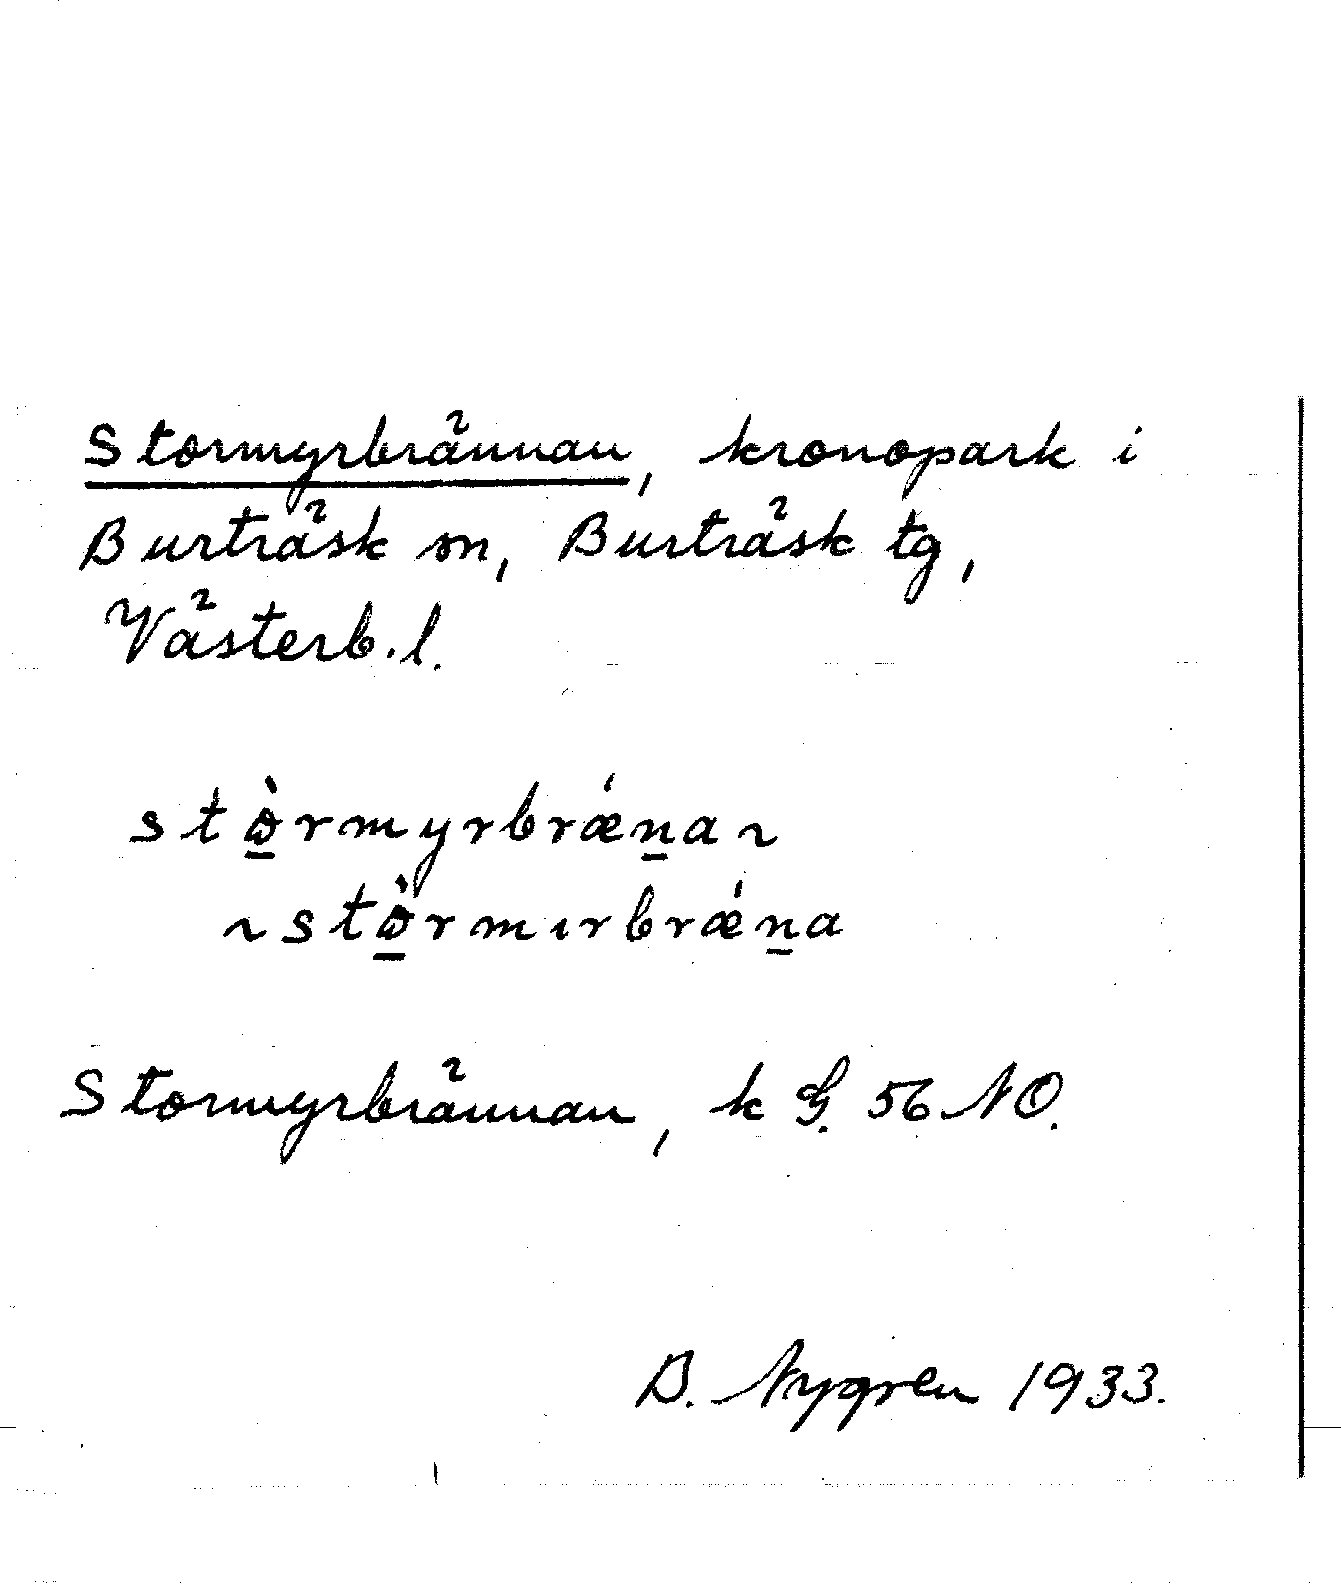 Stormyrbrännan, kronopark i
Burträsk sn, Burträsk tg,
Västerb. l.
stɷ̠̀rmyrbrǽn̠a ~
~ stɷ̠̀rmırbrǽn̠a
Stormyrbrännan, k G. 56 NO.
B. Nygren 1933.